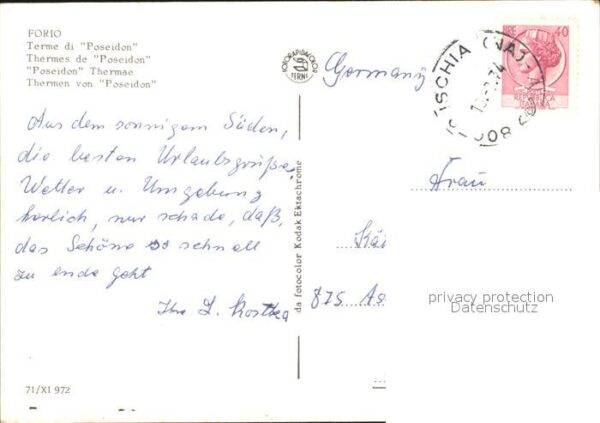 FORIO
Terme di "Poseidon"
Thermes de "Poseidon"
"Poseidon" Thermae
Thermen von "Poseidon"
Aus dem sonnigem Süden,
die besten Urlaubsgrüße.
Wetter u. Umgebung
herlich, nur schade, daß
das Schöne so schnell
zu ende geht
Ihre L. Kostka
71/XI 972
da fotocolor Kodak Ektachrome
TERNI
Germany
ISCHIA (NA)
40
REPUBBLICA
ITALIANA
Frau
875 As
privacy protection
Datenschutz